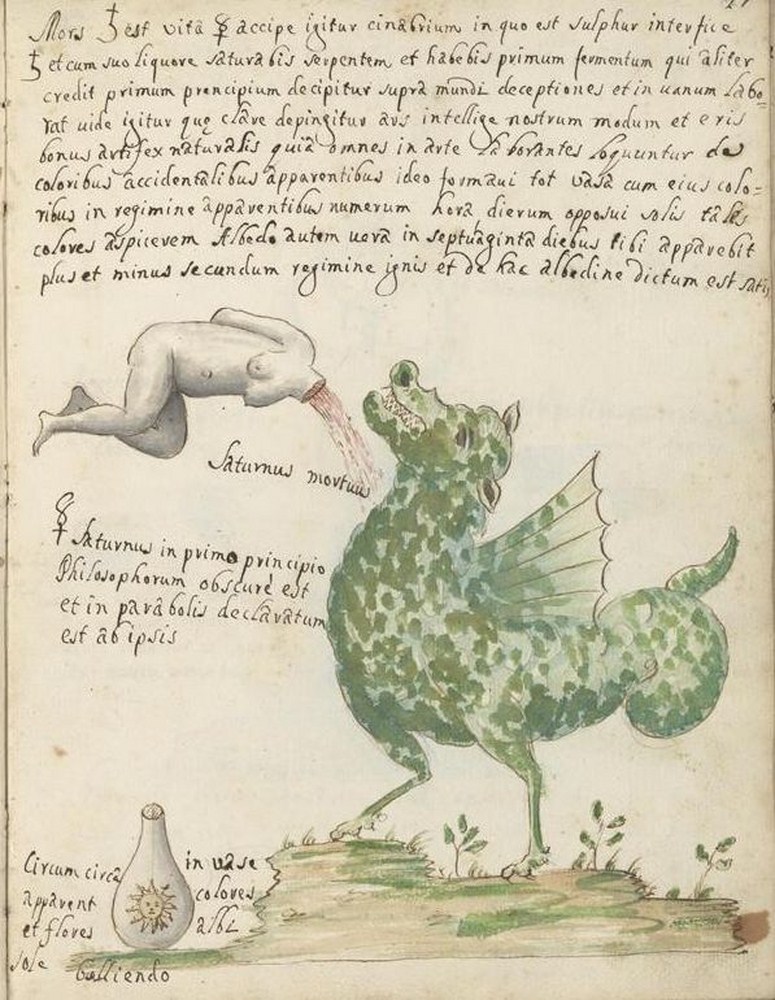 Mors ♄ est vita ☿ accipe igitur cinabrium in quo est sulphur interfice
♄ et cum suo liquore saturabis serpentem et habebis primum fermentum qui aliter
credit primum prencipium decipitur supra mundi deceptiones et in uanum labo=
rat uide igitur quę clare depingitur ars intellige nostrum modum et eris
bonus artifex naturalis quia omnes in arte laborantes loquuntur de
coloribus accidentalibus apparentibus ideo formaui tot vasa cum eius colo=
ribus in regimine apparentibus numerum hora dierum opposui solis tales
colores aspicerem Albedo autem uera in septuaginta diebus tibi apparebit
plus et minus secundum regimine ignis et de hac albedine dictum est satis
Saturnus mortuus
☿ Saturnus in primo principio
Philosophorum obscure est
et in parabolis declaratum
est ab ipsis
Circum circa in vase
apparent colores
et flores albi
sole bulliendo